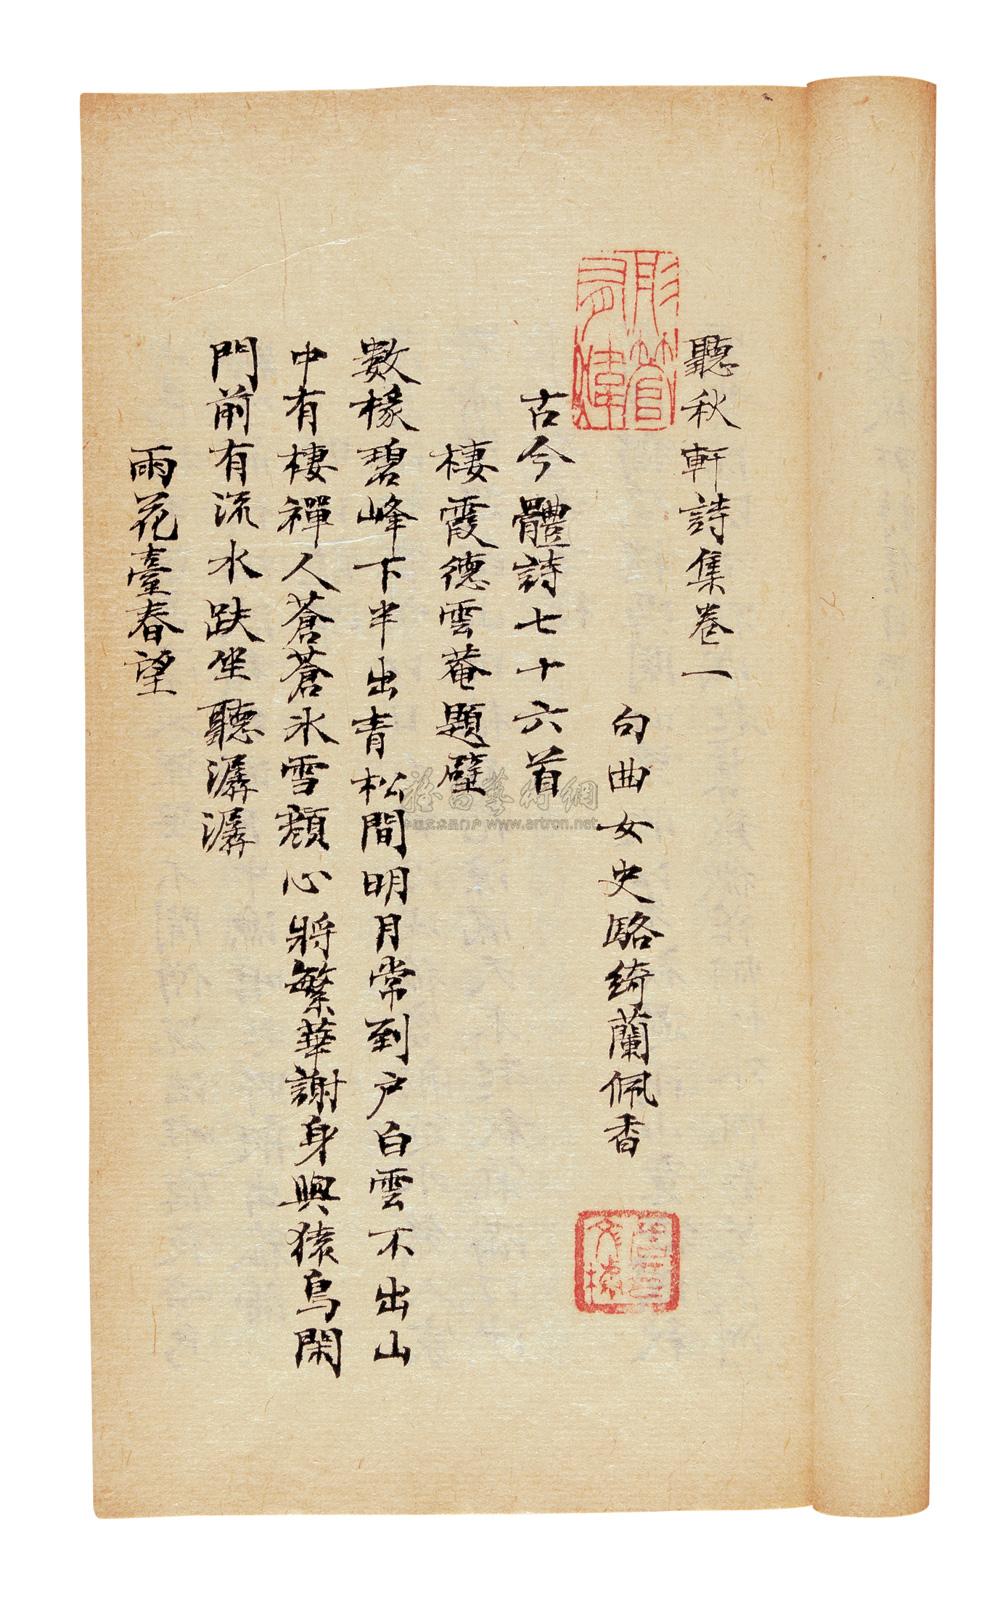 聽秋軒詩集卷一
句曲女史駱綺蘭佩香
古今體詩七十六首
棲霞德雲菴題壁
數椽碧峰下半出青松間明月常到户白雲不出山
中有棲禪人蒼蒼氷雪顏心將繁華謝身與猿鳥閑
門前有流水趺坐聽潺潺
雨花臺春望
彤管有煒
www.artron.net